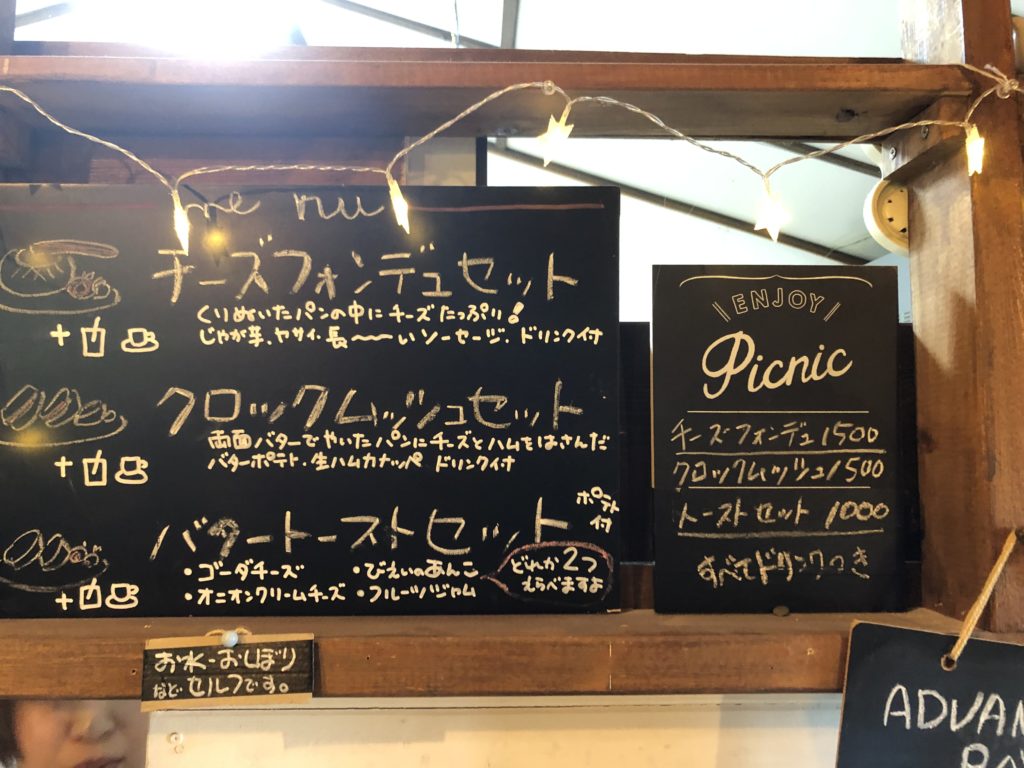 menu
チーズフォンデュセット
くりぬいたパンの中にチーズたっぷり!
じゃが芋、ヤサイ・長〜〜いソーセージ・ドリンク付
クロックムッシュセット
両面バターでやいたパンにチーズとハムをはさんだ
バターポテト・生ハムカナッペ ドリンク付
バタートーストセット
ポテト
付
・ゴーダチーズ ・びえいのあんこ
・オニオンクリームチーズ ・フルーツジャム
どれか2つ
えらべますよ
ENJOY
Picnic
チーズフォンデュ 1500
クロックムッシュ 1500
トーストセット 1000
すべてドリンクつき
お水・おしぼり
など セルフです。
ADVAN